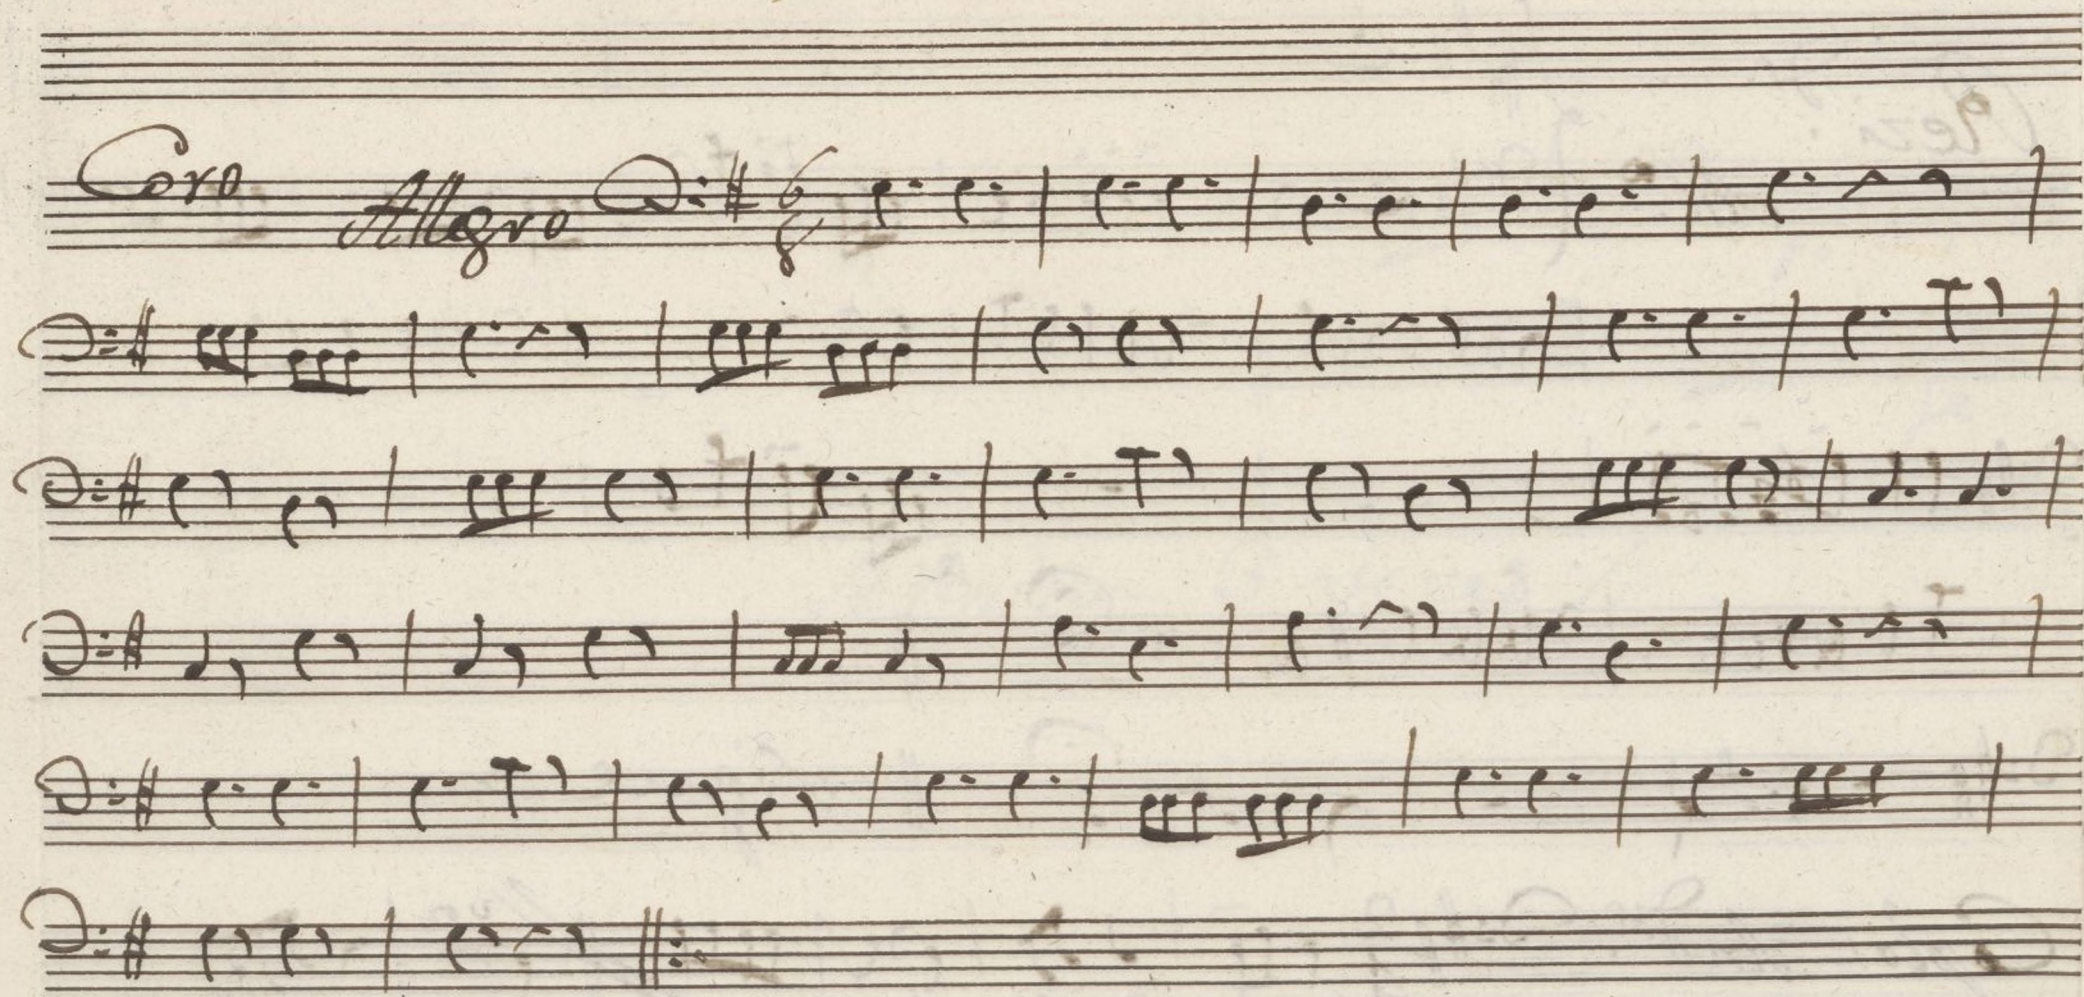 Coro Allegro 6
8